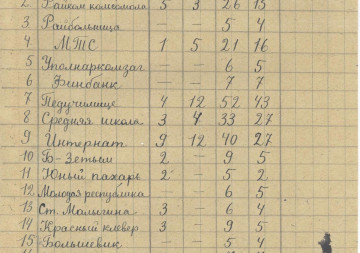 2 Райком комсомола 5 3 26 15
3 Райбольница — — 5 4
4 МТС 1 5 21 16
5 Уполнаркомзаг — — 6 5
6 Финбанк — — 7 7
7 Педучилище 4 12 52 43
8 Средняя школа 3 4 33 27
9 Интернат 9 12 40 27
10 Б-Зетым 2 — 9 5
11 Юный пахарь 2 — 5 2
12 Молодая республика 6 5
13 Ст. Малыгина 3 — 6 4
14 Красный клевер 3 — 9 5
15 Большевик — — 5 4